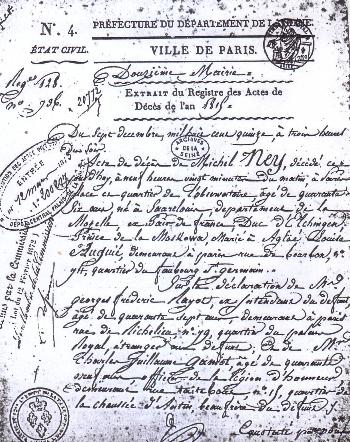 N.° 4.
PRÉFECTURE DU DÉPARTEMENT DE LA SEINE.
ÉTAT CIVIL.
VILLE DE PARIS.
Reg. 428.
N° 796.
Douzième Mairie
EXTRAIT du Registre des Actes de
Décès de l'an 1815
Du Sept decembre, mil huit cent quinze à trois heures
du soir.
ARCHIVES DE LA SEINE
ENTRÉE
Acte de décès de Michel Ney, décédé ce
jourd'huy, à neuf heures vingt minutes du matin, à
place ce quartier de l'observatoire, âgé de quarante
Six ans né à Sarrelouis, département de la
Moselle ex Pair de france, Duc d'Elchingen,
Prince de la Moskowa, Marié à Aglaé Louise
Auguié, demeurant à paris rue de Bourbon, n.°
quartier du faubourg S.t germain.
Sur la déclaration de M.r
georges frédéric Rayot, ex Intendant
âgé de quarante sept ans demeurant à paris
rue de Richelieu n.° 79, quartier du palais
Royal, étranger au défunt. Et de M.r
Charles Guillaume Gamot âgé de quarante
ans officier de la légion d'honneur
demeurant n.° 15, quartier de
la chaussée d'Antin, beaufrère du défunt
Constaté par